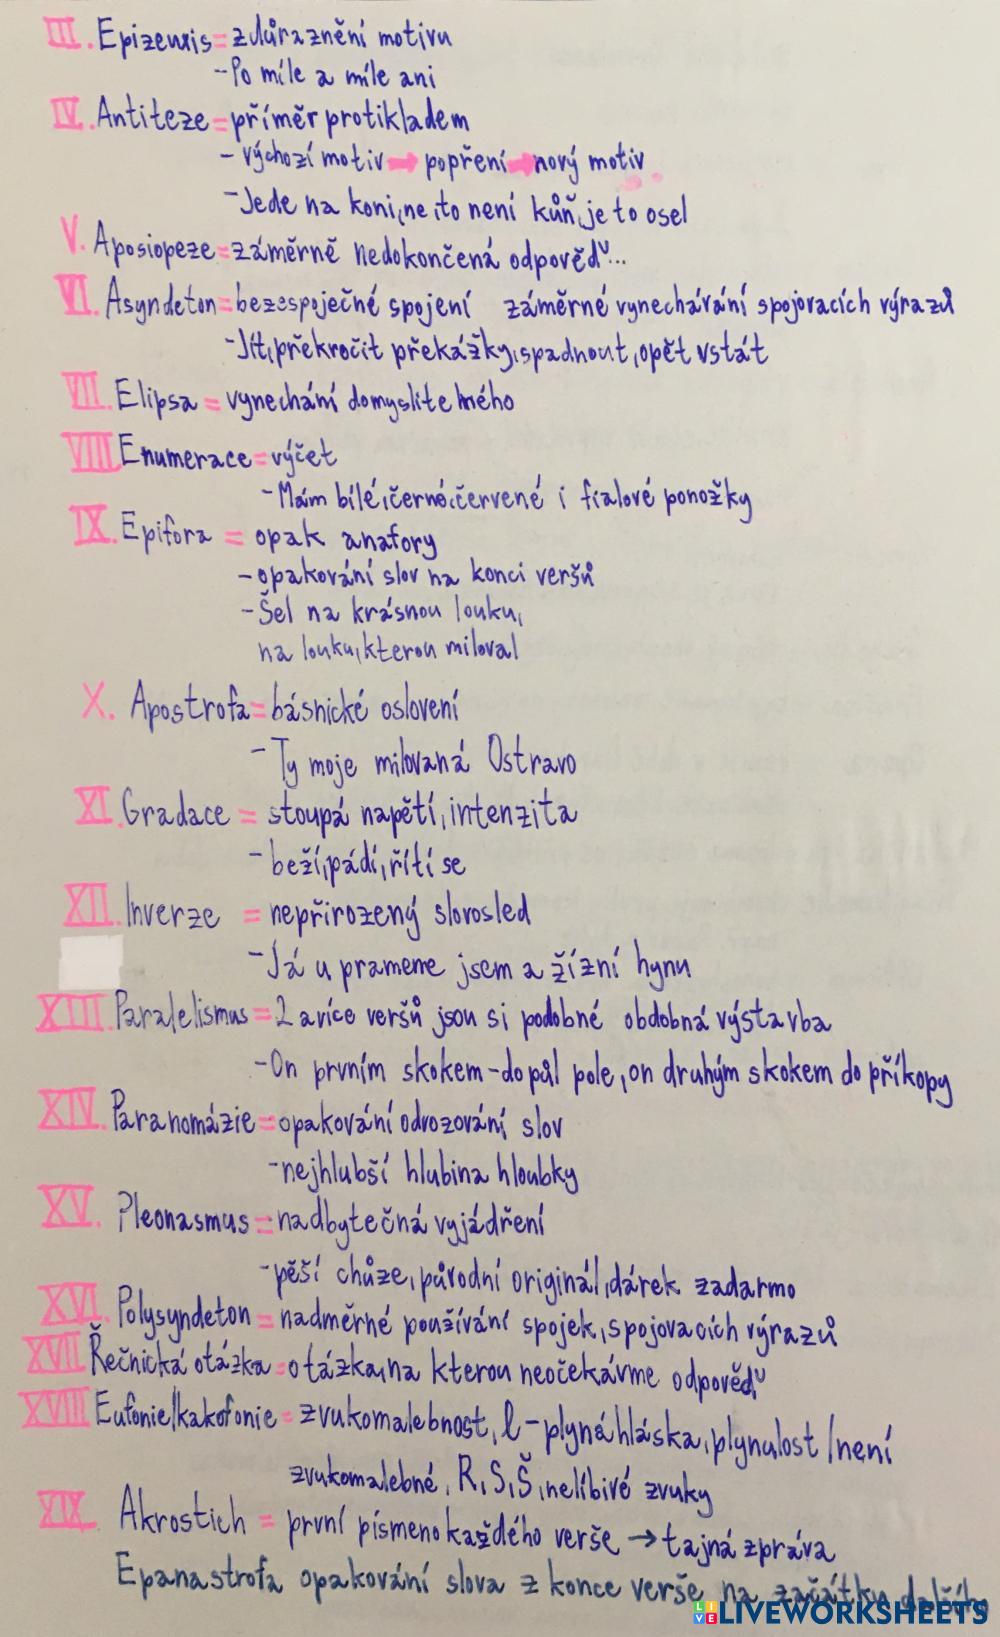 III. Epizeuxis = zdůraznění motivu
- Po míle a míle ani
IV. Antiteze = příměr protikladem
- výchozí motiv → popření → nový motiv
- Jede na koni, ne, to není kůň, je to osel
V. Aposiopeze = záměrně nedokončená odpověď...
VI. Asyndeton = bezespoječné spojení záměrné vynechávání spojovacích výrazů
- Jít, překročit překážky, spadnout, opět vstát
VII. Elipsa = vynechání domyslitelného
VIII. Enumerace = výčet
- Mám bílé, černé, červené i fialové ponožky
IX. Epifora = opak anafory
- opakování slov na konci veršů
- Šel na krásnou louku,
na louku, kterou miloval
X. Apostrofa = básnické oslovení
- Ty moje milovaná Ostravo
XI. Gradace = stoupá napětí, intenzita
- beží, pádí, řítí se
XII. Inverze = nepřirozený slovosled
- Já u pramene jsem a žízní hynu
XIII. Paralelismus = 2 a více veršů jsou si podobné obdobná výstavba
- On prvním skokem - do půl pole, on druhým skokem do příkopy
XIV. Paranomázie = opakování odvozování slov
- nejhlubší hlubina hloubky
XV. Pleonasmus = nadbytečná vyjádření
- pěší chůze, původní originál, dárek zadarmo
XVI. Polysyndeton = nadměrné používání spojek, spojovacích výrazů
XVII. Řečnická otázka = otázka, na kterou neočekávme odpověď
XVIII. Eufonie/kakofonie = zvukomalebnost, l - plyná hláska, plynulost / není
zvukomalebné, R, S, Š, nelibivé zvuky
XIX. Akrostich = první písmeno každého verše → tajná zpráva
Epanastrofa opakování slova z konce verše na začátku dalšího
LIVEWORKSHEETS